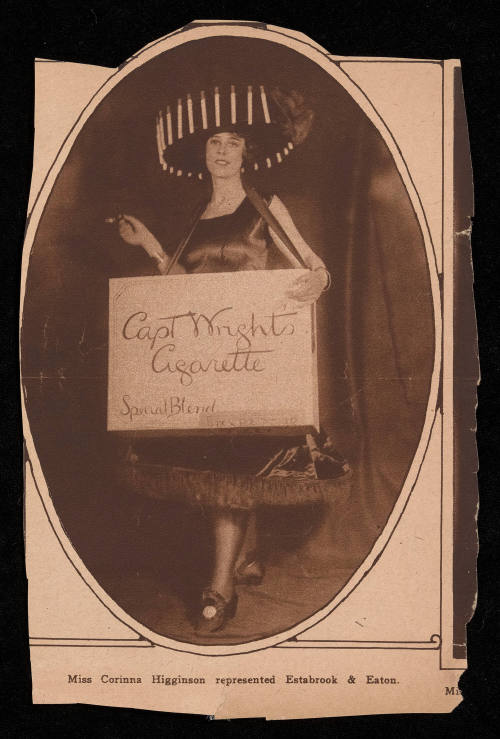 Capt Wright's
Cigarette
Special Blend
Miss Corinna Higginson represented Estabrook & Eaton.